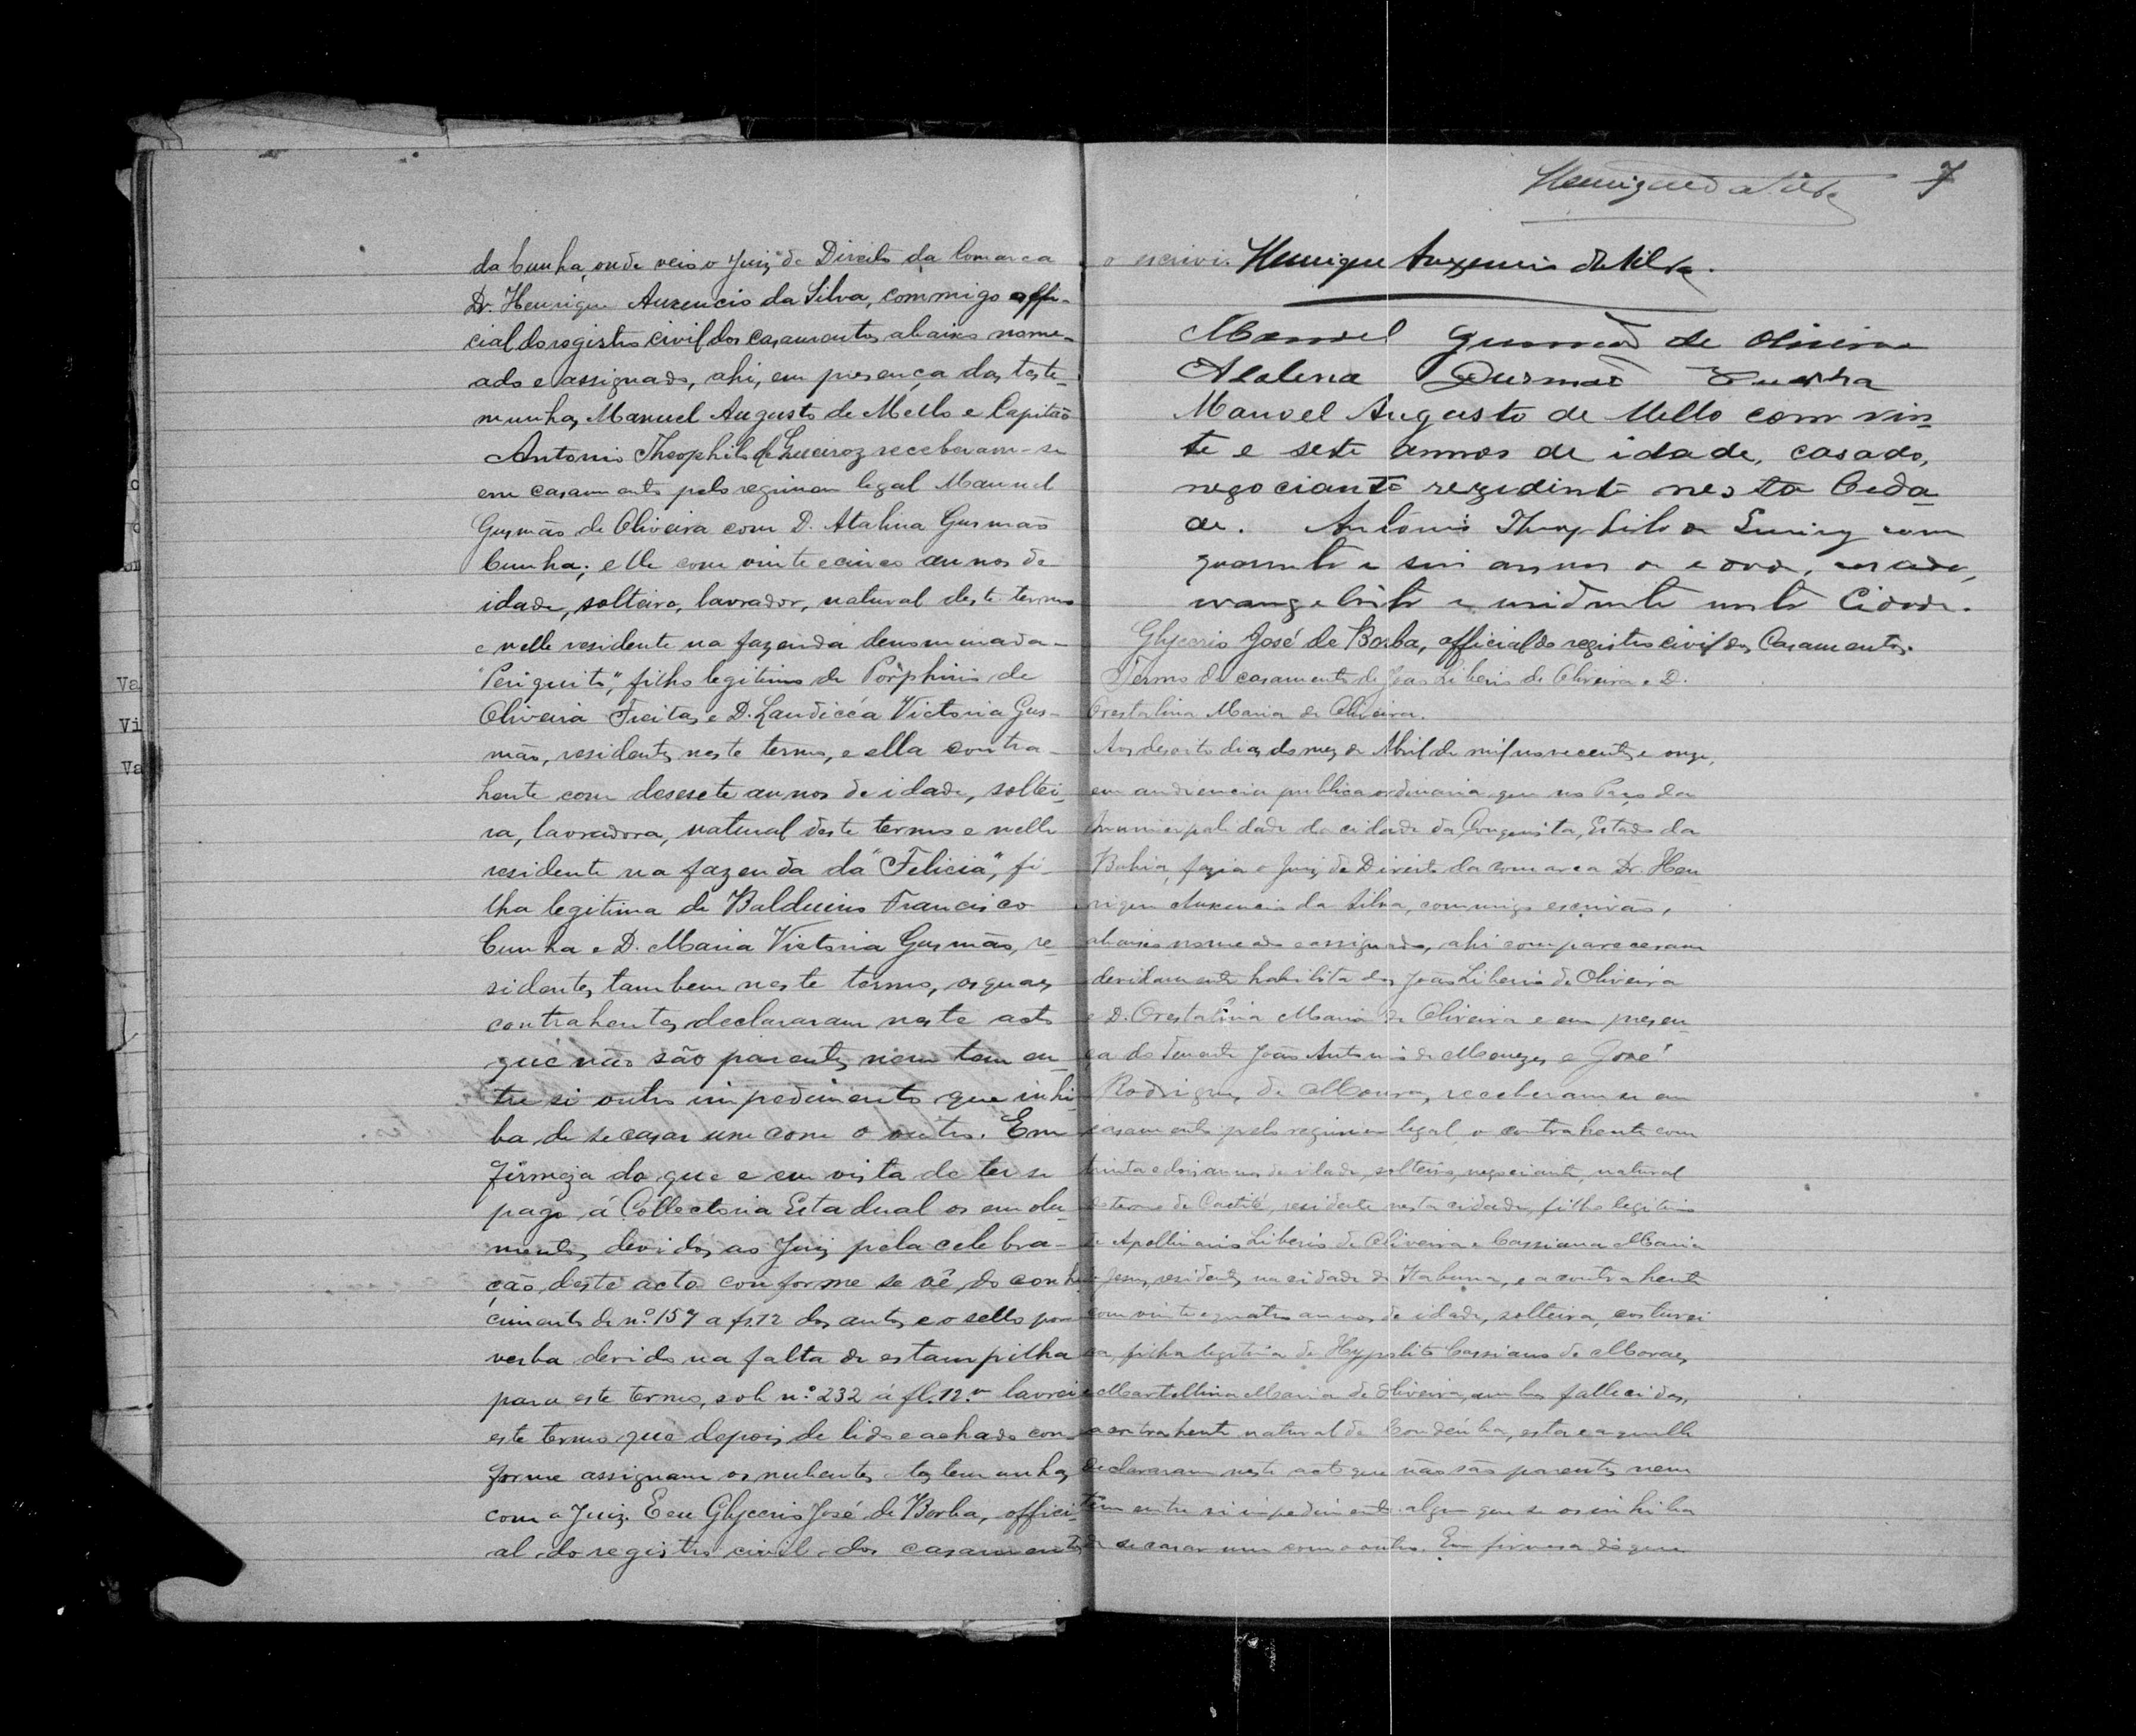 da Cunha, onde veio o Juiz de Direito da Comarca
Dr. Henrique Auxencio da Silva, commigo offi-
cial do registro civil dos casamentos abaixo nome-
ado e assignado, ahi, em presença das teste-
munhas Manuel Augusto de Mello e Capitão
Antonio Theophilo de Queiroz receberam-se
em casamento pelo regimen legal Manuel
Gusmão de Oliveira com D. Atalina Gusmão
Cunha; elle com vinte e cinco annos de
idade, solteiro, lavrador, natural deste termo
e nelle residente na fazenda denominada-
"Periquito", filho legitimo de Porphirio de
Oliveira Freitas e D. Laudicéa Victoria Gus-
mão, residentes neste termo, e ella contra-
hente com desesete annos de idade, soltei-
ra, lavradora, natural deste termo e nelle
residente na fazenda da "Felicia", fi-
lha legitima de Balduino Francisco
Cunha e D. Maria Victoria Gusmão, re-
sidentes tambem neste termo, os quaes
contrahentes declararam neste acto
que não são parentes nem tem en-
tre si outro impedimento que inhi-
ba de se casar um com o outro. Em
firmeza do que e em vista de ter se
pago á Collectoria Estadual os emolu-
mentos devidos ao Juiz pela celebra-
ção deste acto conforme se vê do conhe-
cimento de nº 157 a fs. 12 dos autos e o sello por
verba devido na falta de estampilha
para este termo, sob nº 232 á fl. 12 v lavrei
este termo que depois de lido e achado con-
forme assignam os nubentes testemunhas
com o Juiz. E eu Glycerio José de Borba, offici-
al do registro civil dos casamentos
Henrique da Silva 7
o escrivi. Henrique Auxencio da Silva.
Manoel Gusmão de Oliveira
Atalina Gusmão Cunha
Manoel Augusto de Mello com vin-
te e sete annos de idade, casado,
negociante rezidente nesta Cida
de. Antonio Theophilo de
quarenta e annos de casado,
e residente nesta Cidade.
Glycerio José de Borba, official do registro civil dos Casamentos.
Termo de casamento de João Liberio de Oliveira e D.
Orestalina Maria de Oliveira.
Aos desoito dias do mez de Abril de mil novecentos e onze,
em audiencia publica ordinaria que no Paço da
Municipalidade da cidade da Conquista, Estado da
Bahia, fazia o Juiz de Direito da comarca Dr. Hen-
rique Auxencio da Silva, commigo escrivão,
abaixo nomeado e assignado, ahi compareceram
devidamente habilitados João Liberio de Oliveira
e D. Orestalina Maria de Oliveira e em presen-
ça do Tenente João Antonio de Menezes e José
Rodrigues de Moura, receberam se em
casamento pelo regimen legal, o contrahente com
trinta e dois annos de idade, solteiro, negociante, natural
do termo de Caetité, residente nesta cidade, filho legitimo
de Apollinario Liberio de Oliveira e Cassiana Maria
de Jesus, residentes na cidade de Itabuna, e a contrahente
com vinte e quatro annos de idade, solteira, costurei-
ra, filha legitima de Hypolito Cassiano de Moraes
e Martellina Maria de Oliveira, ambos fallecidos,
a contrahente natural de Condeúba, esta e aquelle
declararam neste acto que não são parentes nem
tem entre si impedimento algum que se os inhiba
de se casar um com o outro. Em firmesa do que